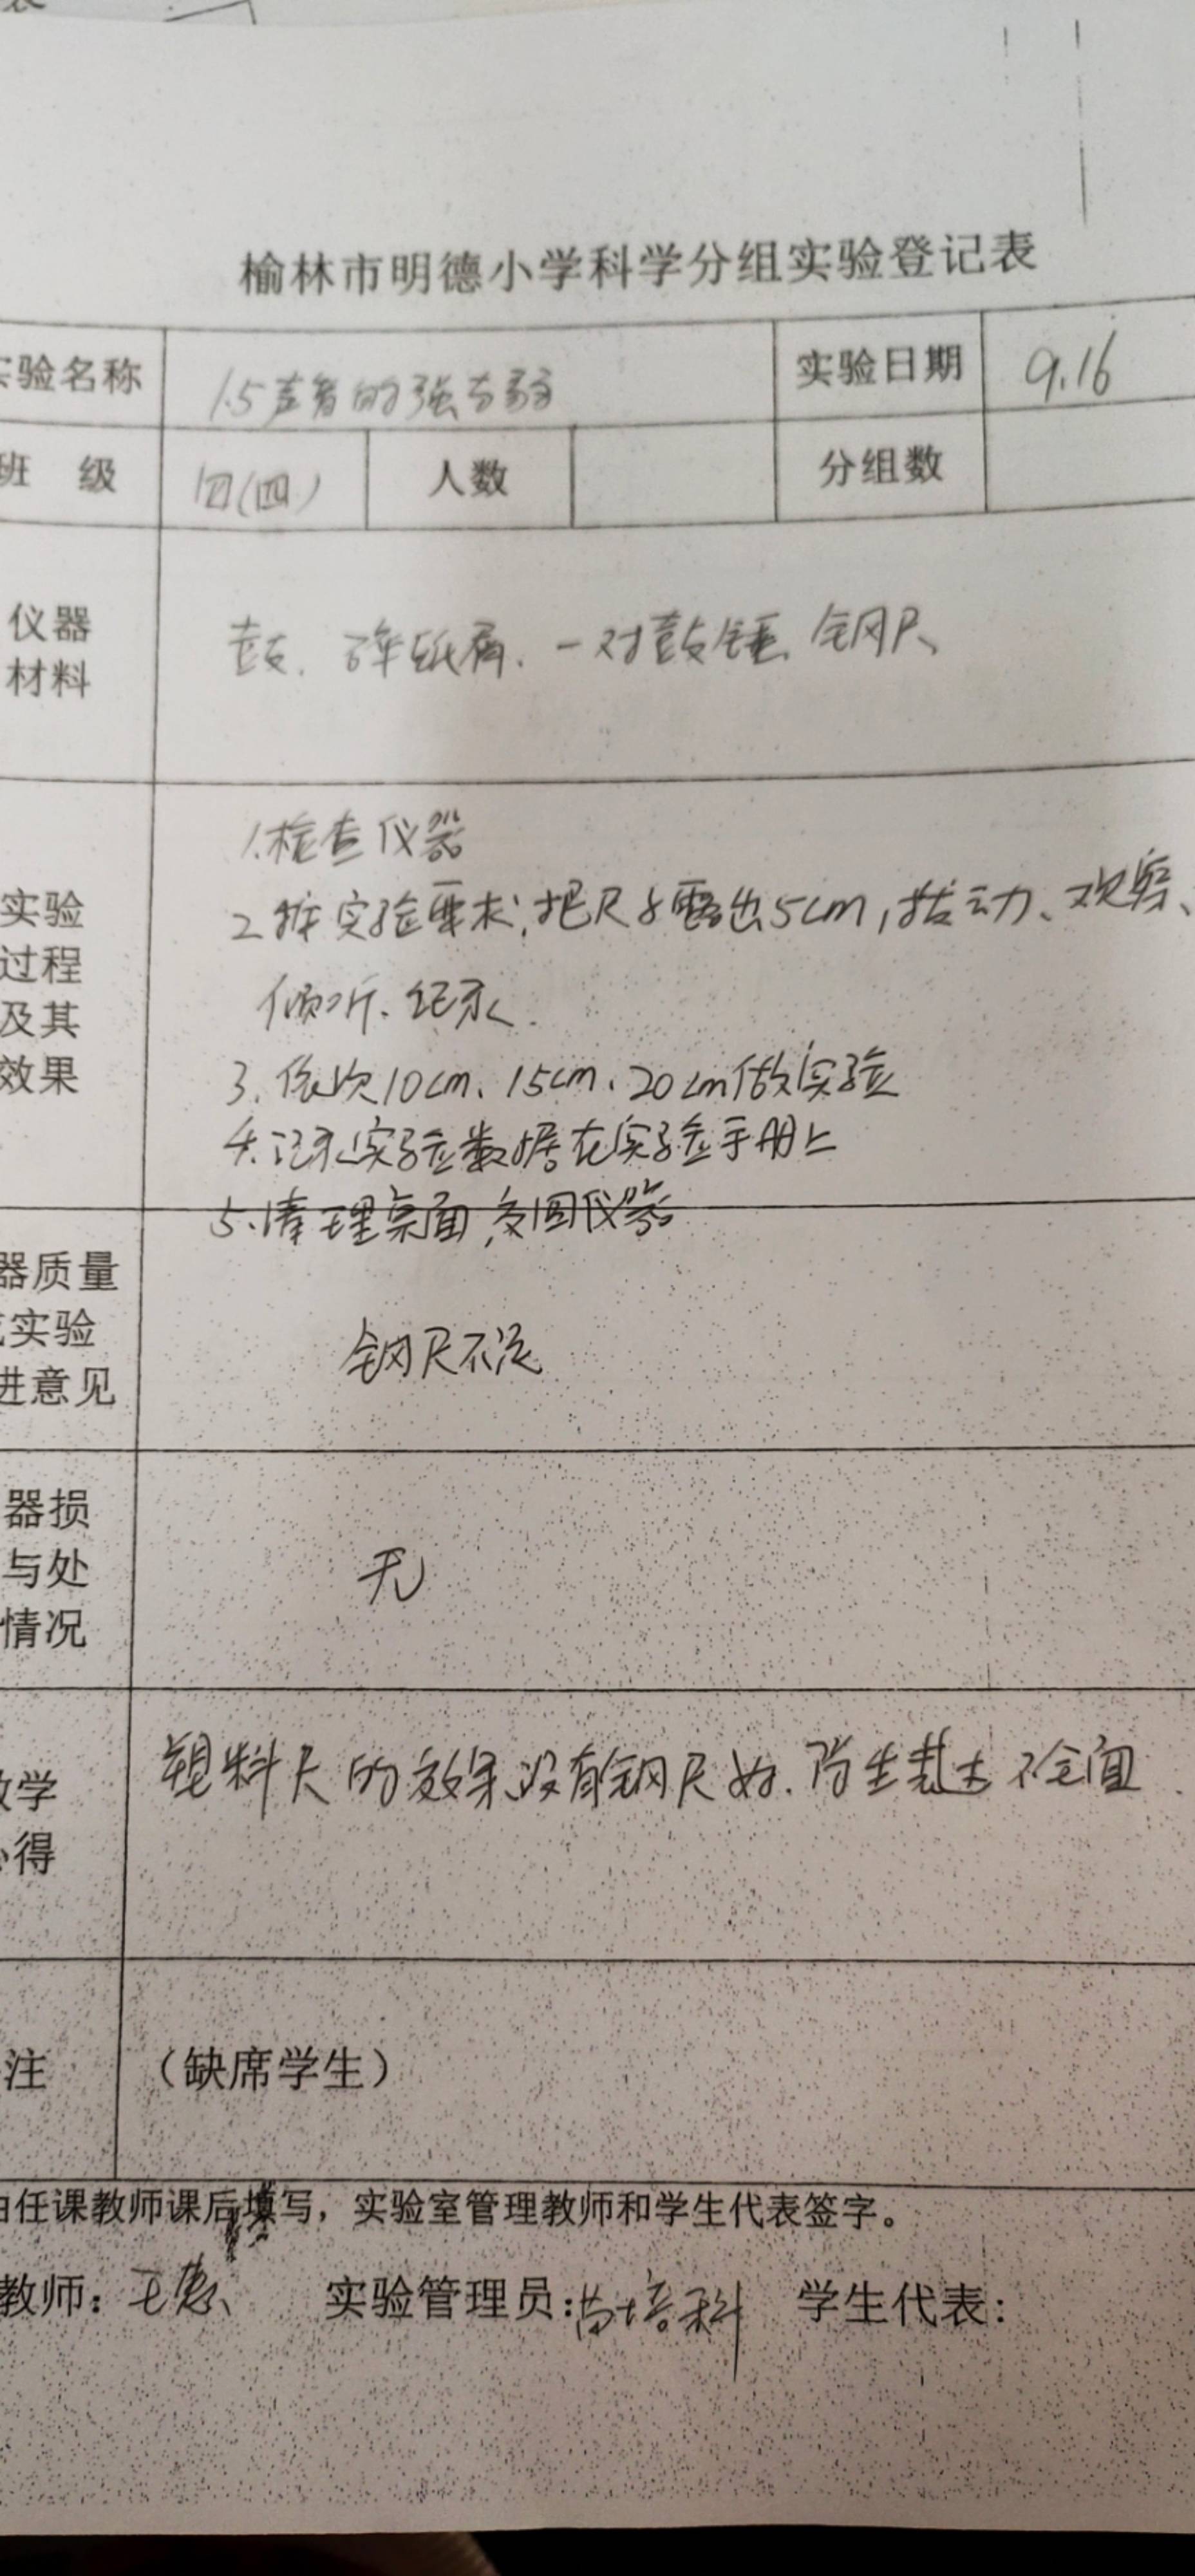 榆林市明德小学科学分组实验登记表
实验名称 1.5声音的强与弱 实验日期 9.16
班 级 四(四) 人数 分组数
仪器 鼓、碎纸屑、一对鼓锤、钢尺、
材料
1.检查仪器
实验 2.按实验要求,把尺子露出5cm,拨动、观察、
过程 倾听、纪录.
及其
效果 3.依次10cm、15cm、20cm做实验
4.记录实验数据在实验手册上
5.清理桌面,交回仪器
器质量
实验 钢尺不足
进意见
器损
与处 无
情况
塑料尺的效果没有钢尺好.学生 不全面.
教学
心得
注 (缺席学生)
由任课教师课后填写,实验室管理教师和学生代表签字。
教师: 实验管理员:苗培科 学生代表: